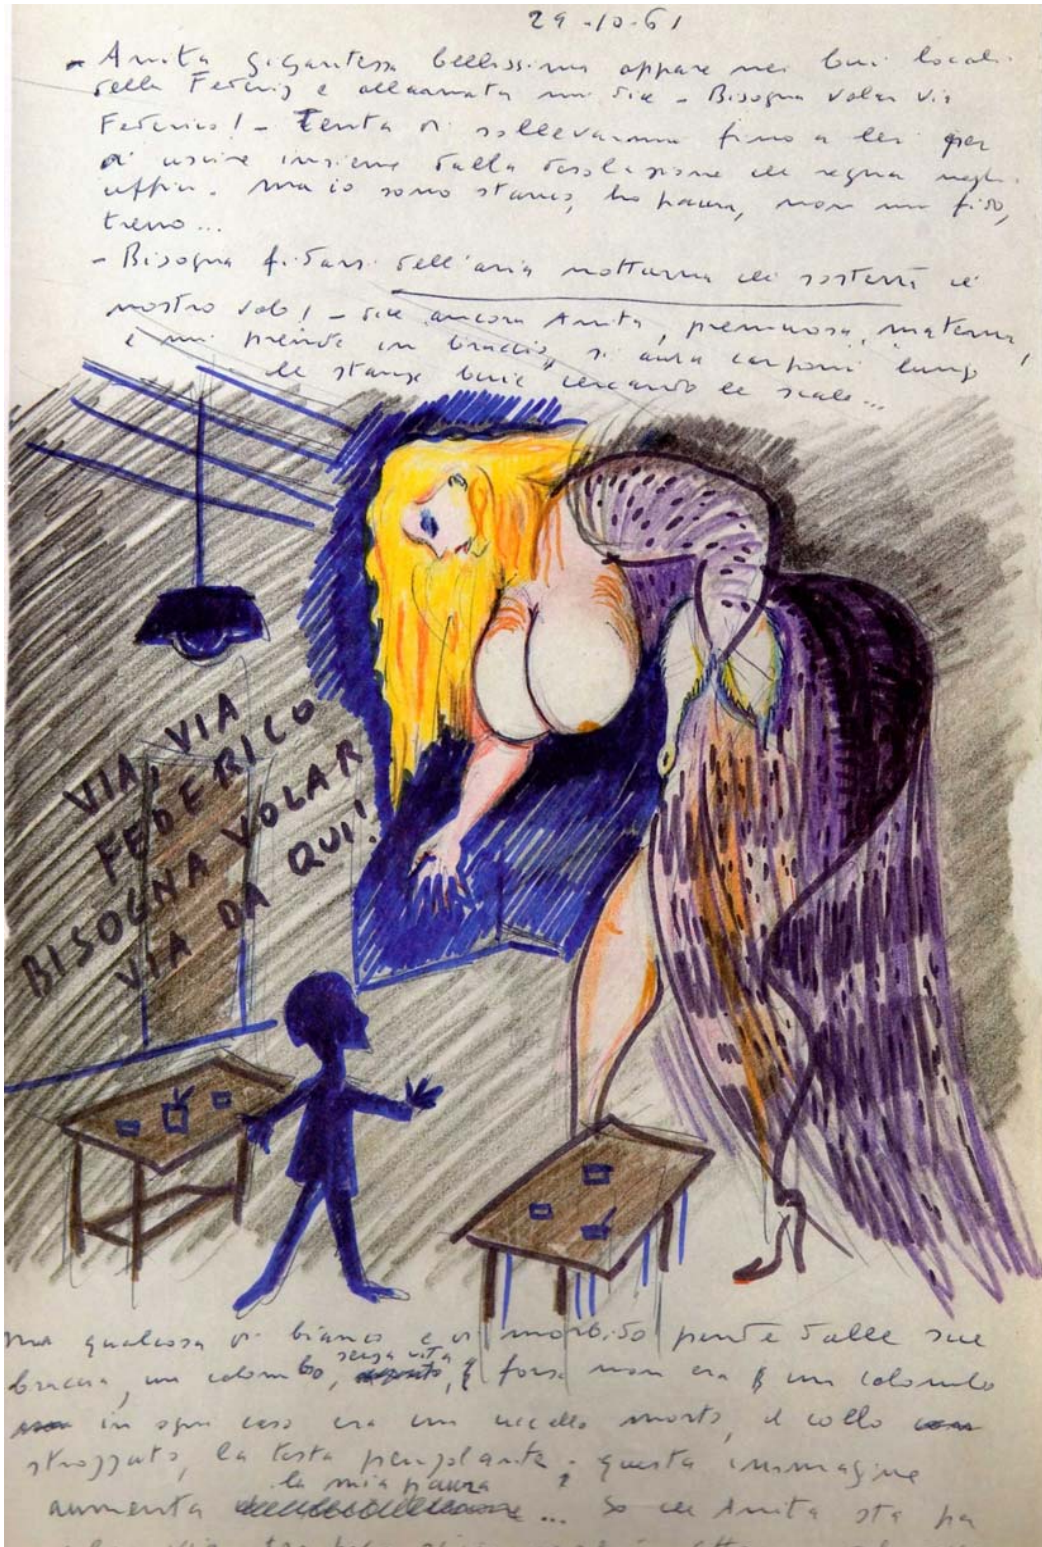 29-10-61
- Anita gigantessa bellissima appare nei bui locali
della Federiz e allarmata mi dice - Bisogna volar via
Federico! - Tenta di sollevarmi fino a lei per
di uscire insieme dalla desolazione che regna negli
uffici. Ma io sono stanco, ho paura, non mi fido,
tremo...
- Bisogna fidarsi dell'aria notturna che sosterrà il
nostro volo! - dice ancora Anita, premurosa, materna,
e mi prende in braccio, si avvia carponi lungo
le stanze buie cercando le scale...
VIA, VIA
FEDERICO
BISOGNA VOLAR
VIA DA QUI!
ma qualcosa di bianco e di morbido pende dalle sue
braccia, un colombo, senza vita, forse non era un colombo
in ogni caso era un uccello morto, il collo
strozzato, la testa penzolante; questa immagine
aumenta la mia paura ... So che Anita sta per